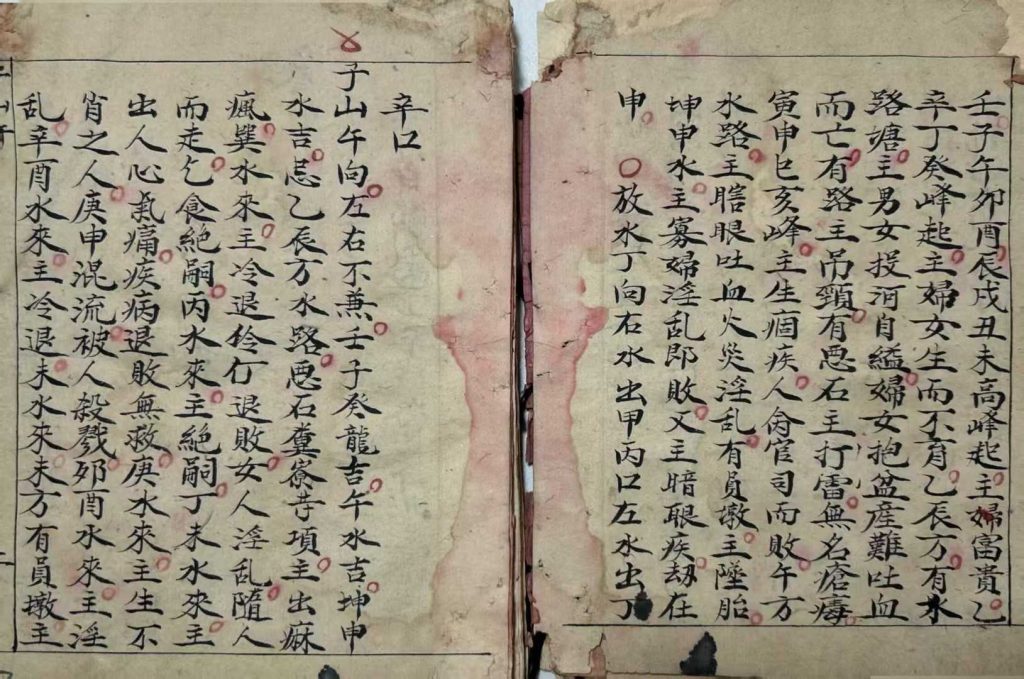 壬子午卯酉辰戌丑未高峰起主婦富貴乙
辛丁癸峰起主婦女生而不育乙辰方有水
路塘主男女投河自縊婦女抱盆産難吐血
而亡有路主吊頸有恶石主打雷無名瘡毒
寅申巳亥峰主生痼疾人俞官司而敗午方
水路主瞎眼吐血火災淫乱有員墩主墜胎
坤申水主寡婦淫乱即敗又主暗眼疾劫在
申 放水丁向右水出甲丙口左水出丁
辛口
子山午向左右不兼壬子癸龍吉午水吉坤申
水吉忌乙辰方水路恶石糞窖寺項主出痳
瘋巽水來主冷退伶仃退敗女人淫乱隨人
而走乞食絶嗣丙水來主絶嗣丁未水來主
出人心氣痛疾病退敗無救庚水來主生不
肖之人庚申混流被人殺戮夘酉水來主淫
乱辛酉水來主冷退未水來未方有員墩主